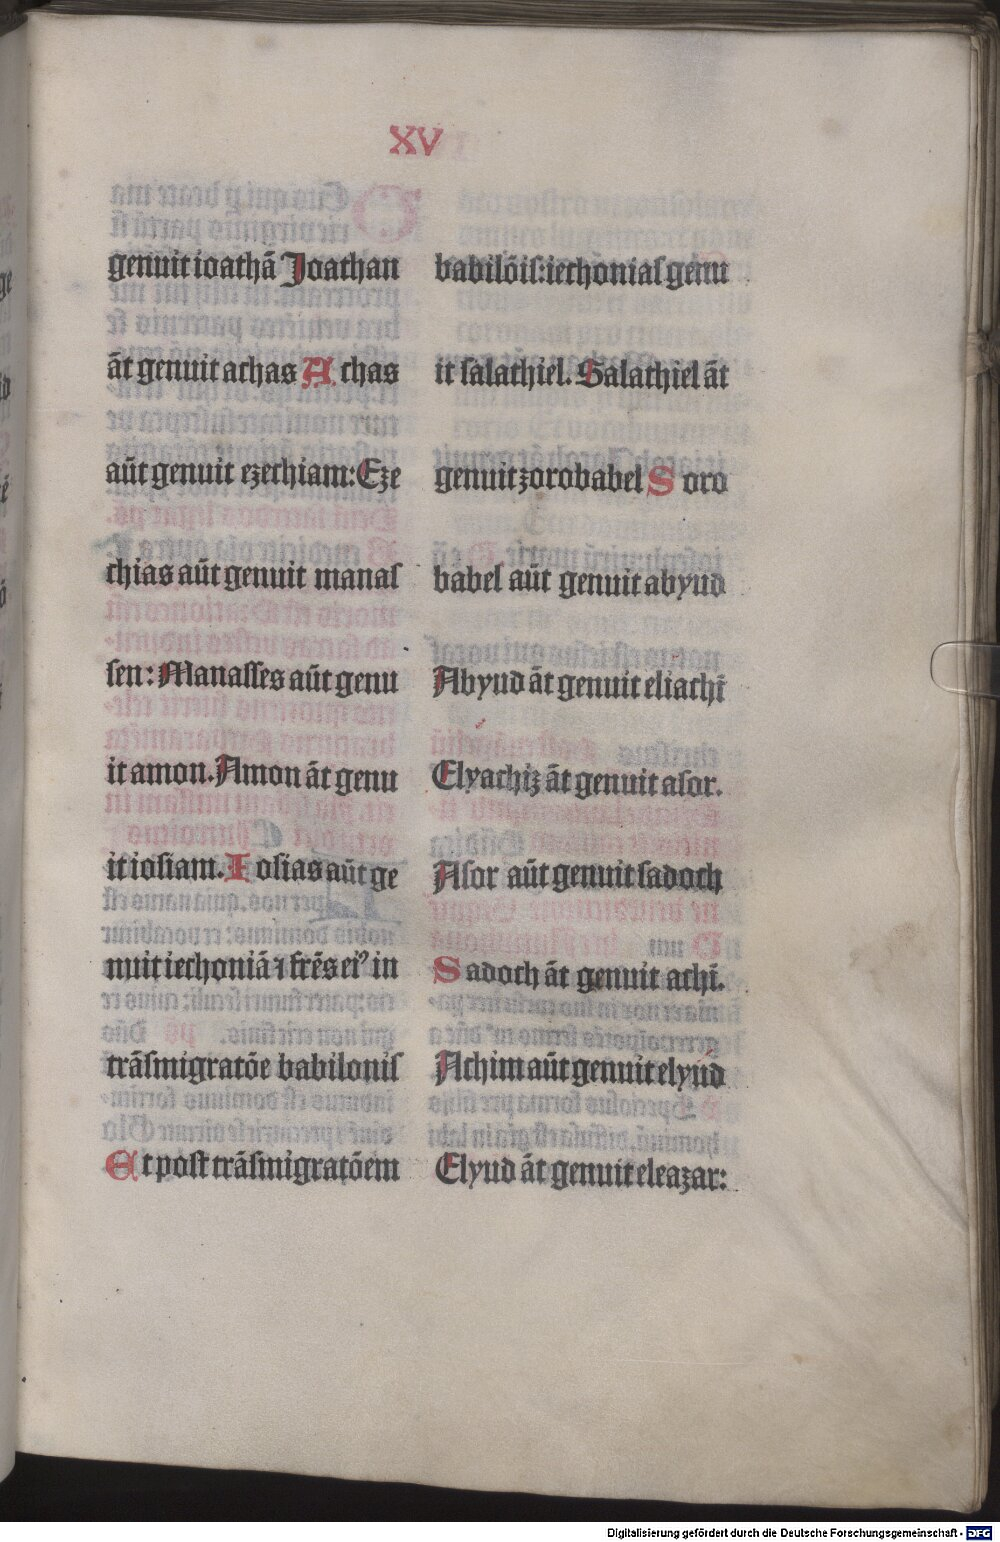 XV
genuit ioathā Joathan
āt genuit achas Achas
aūt genuit ezechiam: Eze
chias aūt genuit manas
sen: Manasses aūt genu
it amon. Amon āt genu
it iosiam. Iosias aūt ge
nuit iechoniā ⁊ frēs eiꝰ in
trāsmigratōe babilonis
Et post trāsmigratōem
babilōis: iechonias genu
it salathiel. Salathiel āt
genuit zorobabel Soro
babel aūt genuit abyud
Abyud āt genuit eliachī
Elyachiz āt genuit asor.
Asor aūt genuit sadoch
Sadoch āt genuit achī.
Achim aūt genuit elyud
Elyud āt genuit eleazar:
Digitalisierung gefördert durch die Deutsche Forschungsgemeinschaft - DFG